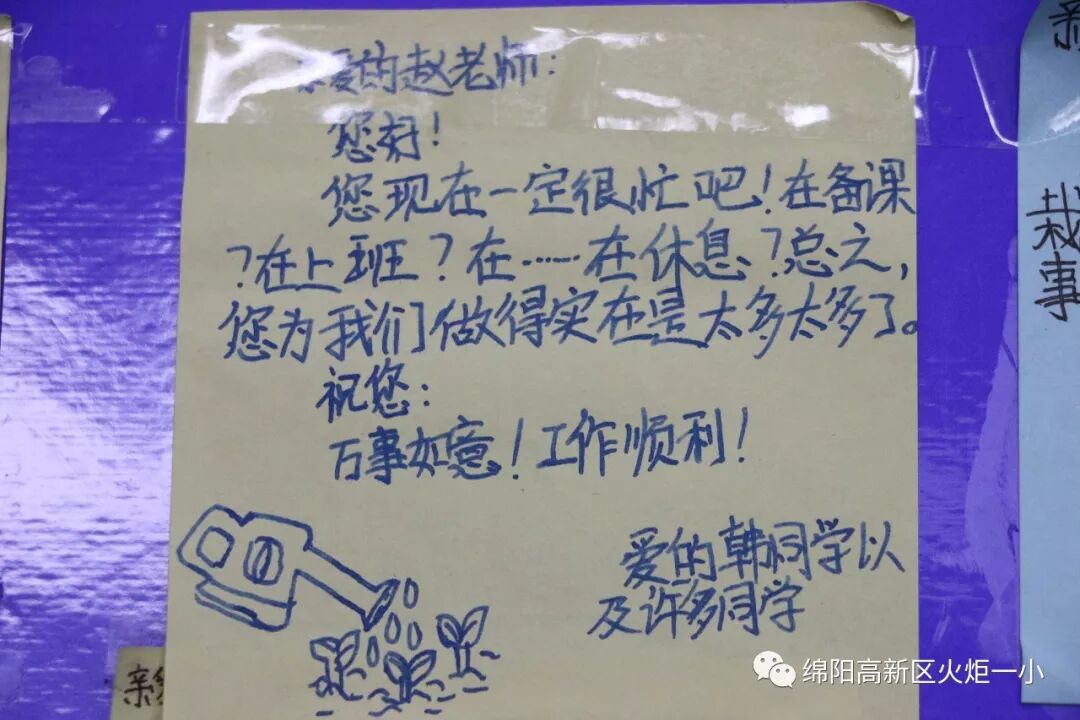 亲爱的赵老师：
您好！
您现在一定很忙吧！在备课
？在上班？在……在休息？总之，
您为我们做得实在是太多太多了。
祝您：
万事如意！工作顺利！
爱的韩同学以
及许多同学
栽
事
亲
绵阳高新区火炬一小